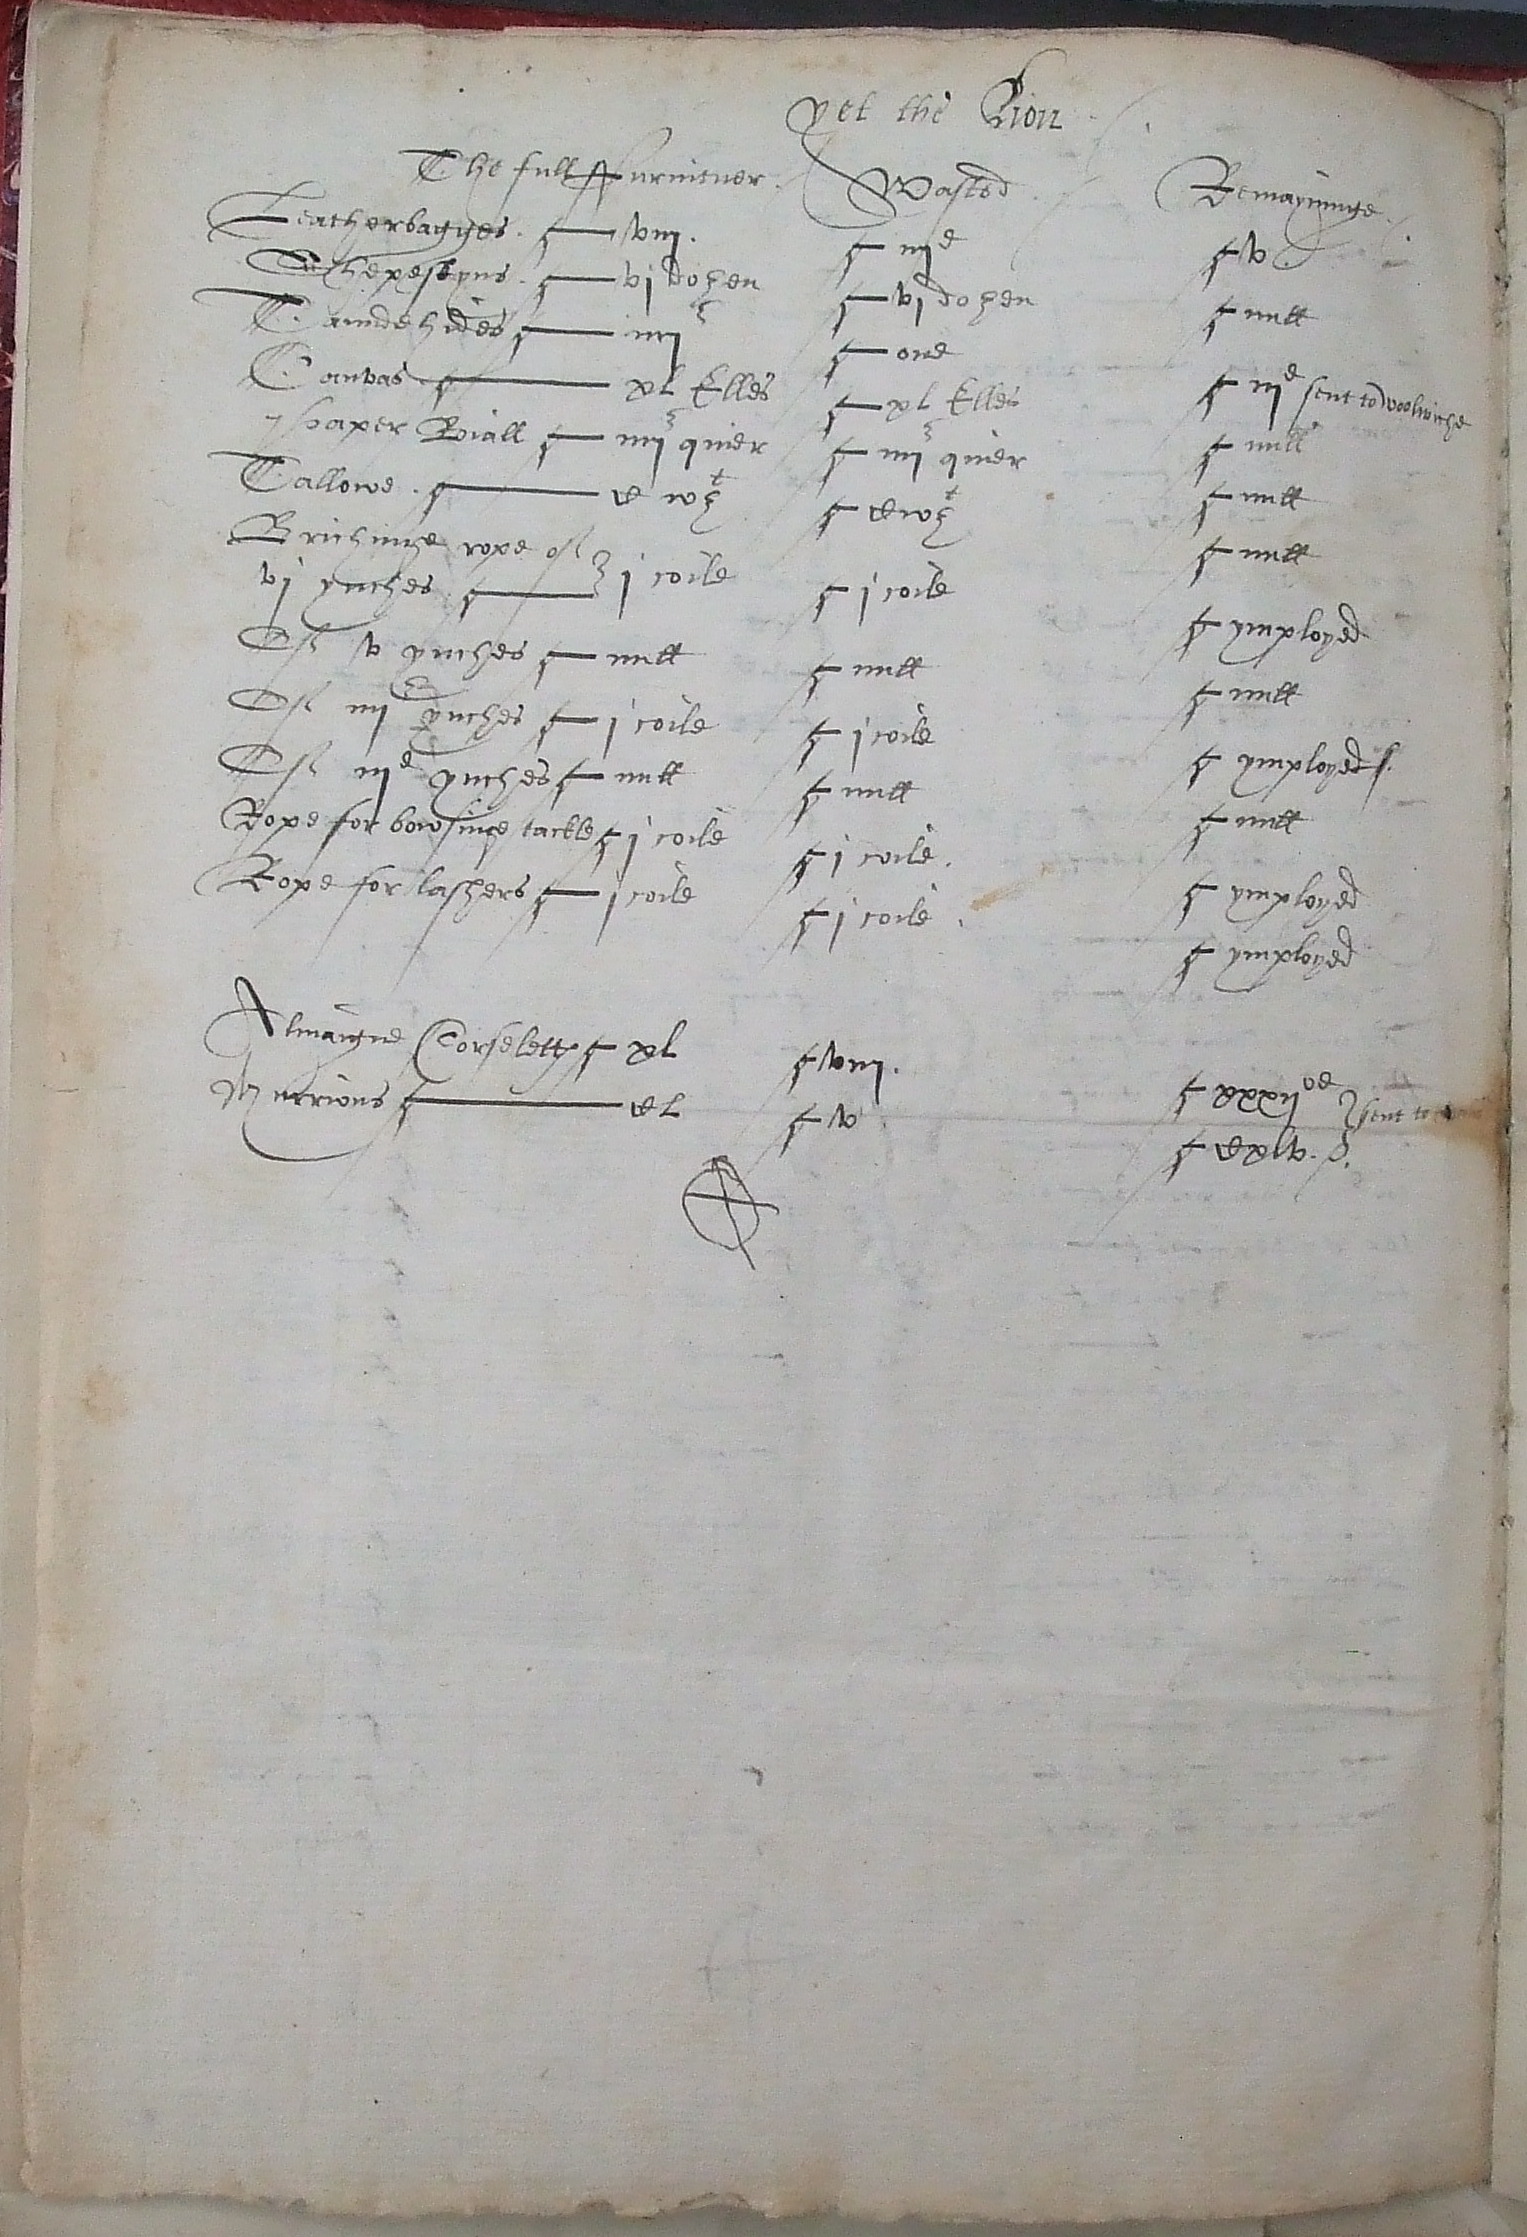 yet the Lion
The full ffurnituer Wasted Remayninge
Leatherbagges viij. iij^e v.
Shepeskyns vj dozen vj dozen null
Tannde hides iiij one iij^e sent to woolwiche
Canvas xl Elles xl Elles null
paper Roiall iiij quier iiij quier null
Tallowe C w^t C w^t null
Brichinge rope of
vj ynches j coile j coile ymployed
Of v ynches null null null
Of iiij ynches j coile j coile ymployed
Of iij^e ynches null null null
Rope for bowsinge tackle j coile j coile ymployed
Rope for lashers j coile j coile ymployed
Almaigne Corselett xl viij. xxxij^oe sent to
Murrions Cl v Cxlv.